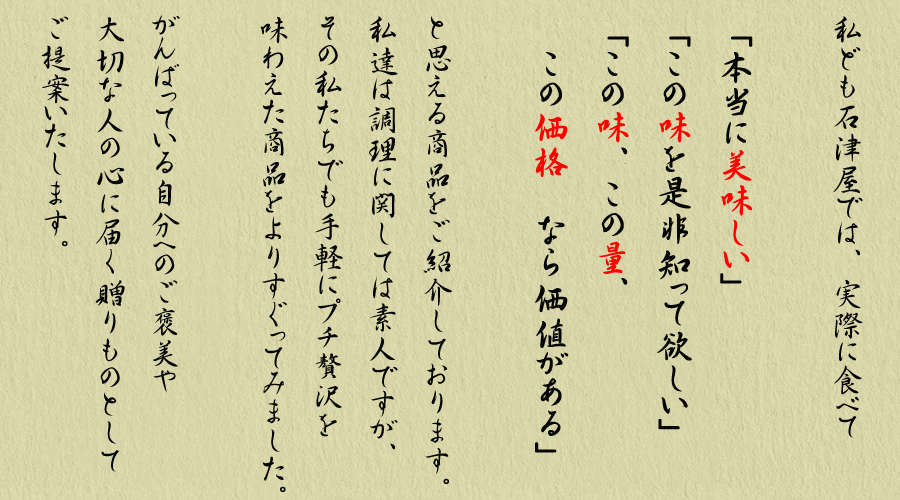 私ども石津屋では、実際に食べて
「本当に美味しい」
「この味を是非知って欲しい」
「この味、この量、
この価格　なら価値がある」
と思える商品をご紹介しております。
私達は調理に関しては素人ですが、
その私たちでも手軽にプチ贅沢を
味わえた商品をよりすぐってみました。
がんばっている自分へのご褒美や
大切な人の心に届く贈りものとして
ご提案いたします。